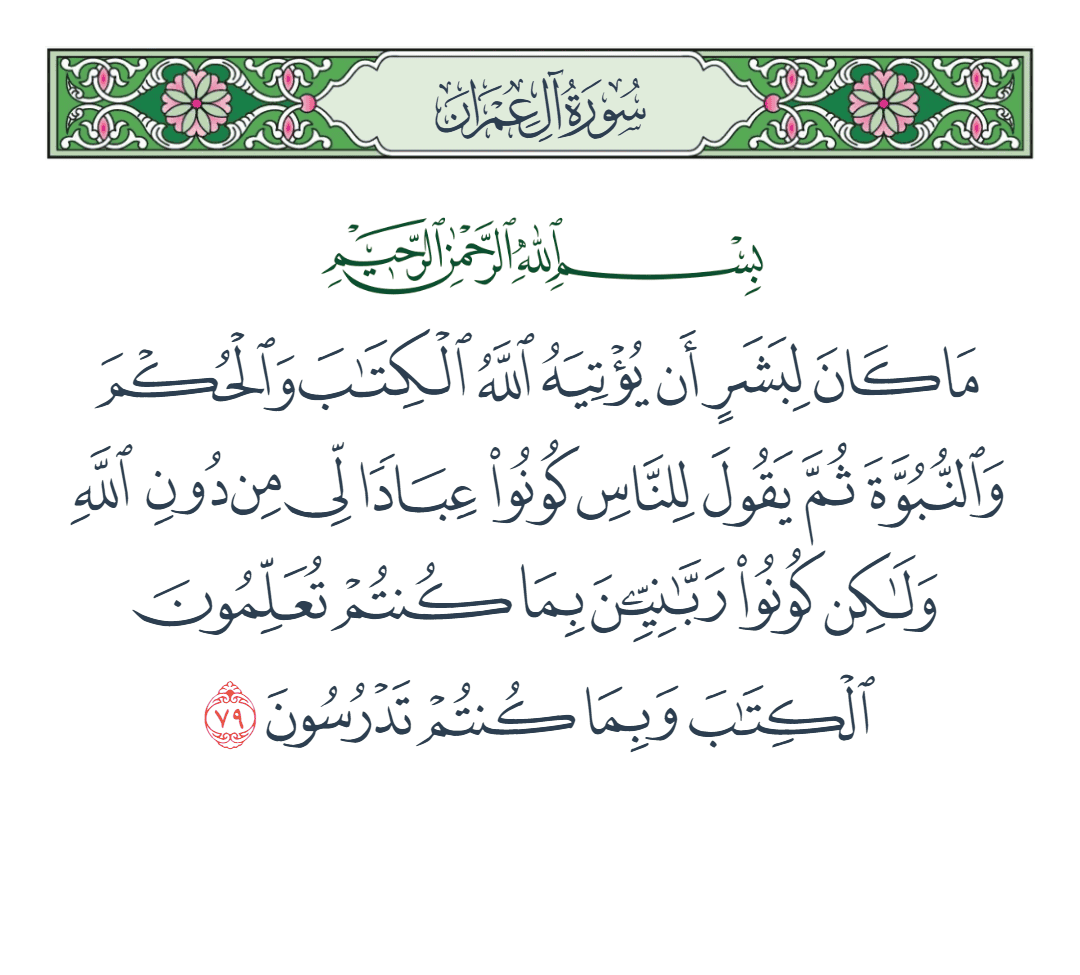 سُورَةُ آلِ عِمْرَانَ
بِسْمِ ٱللَّهِ ٱلرَّحْمَٰنِ ٱلرَّحِيمِ
مَا كَانَ لِبَشَرٍ أَن يُؤْتِيَهُ ٱللَّهُ ٱلْكِتَٰبَ وَٱلْحُكْمَ
وَٱلنُّبُوَّةَ ثُمَّ يَقُولَ لِلنَّاسِ كُونُوا۟ عِبَادًا لِّى مِن دُونِ ٱللَّهِ
وَلَٰكِن كُونُوا۟ رَبَّٰنِيِّۦنَ بِمَا كُنتُمْ تُعَلِّمُونَ
ٱلْكِتَٰبَ وَبِمَا كُنتُمْ تَدْرُسُونَ ٧٩